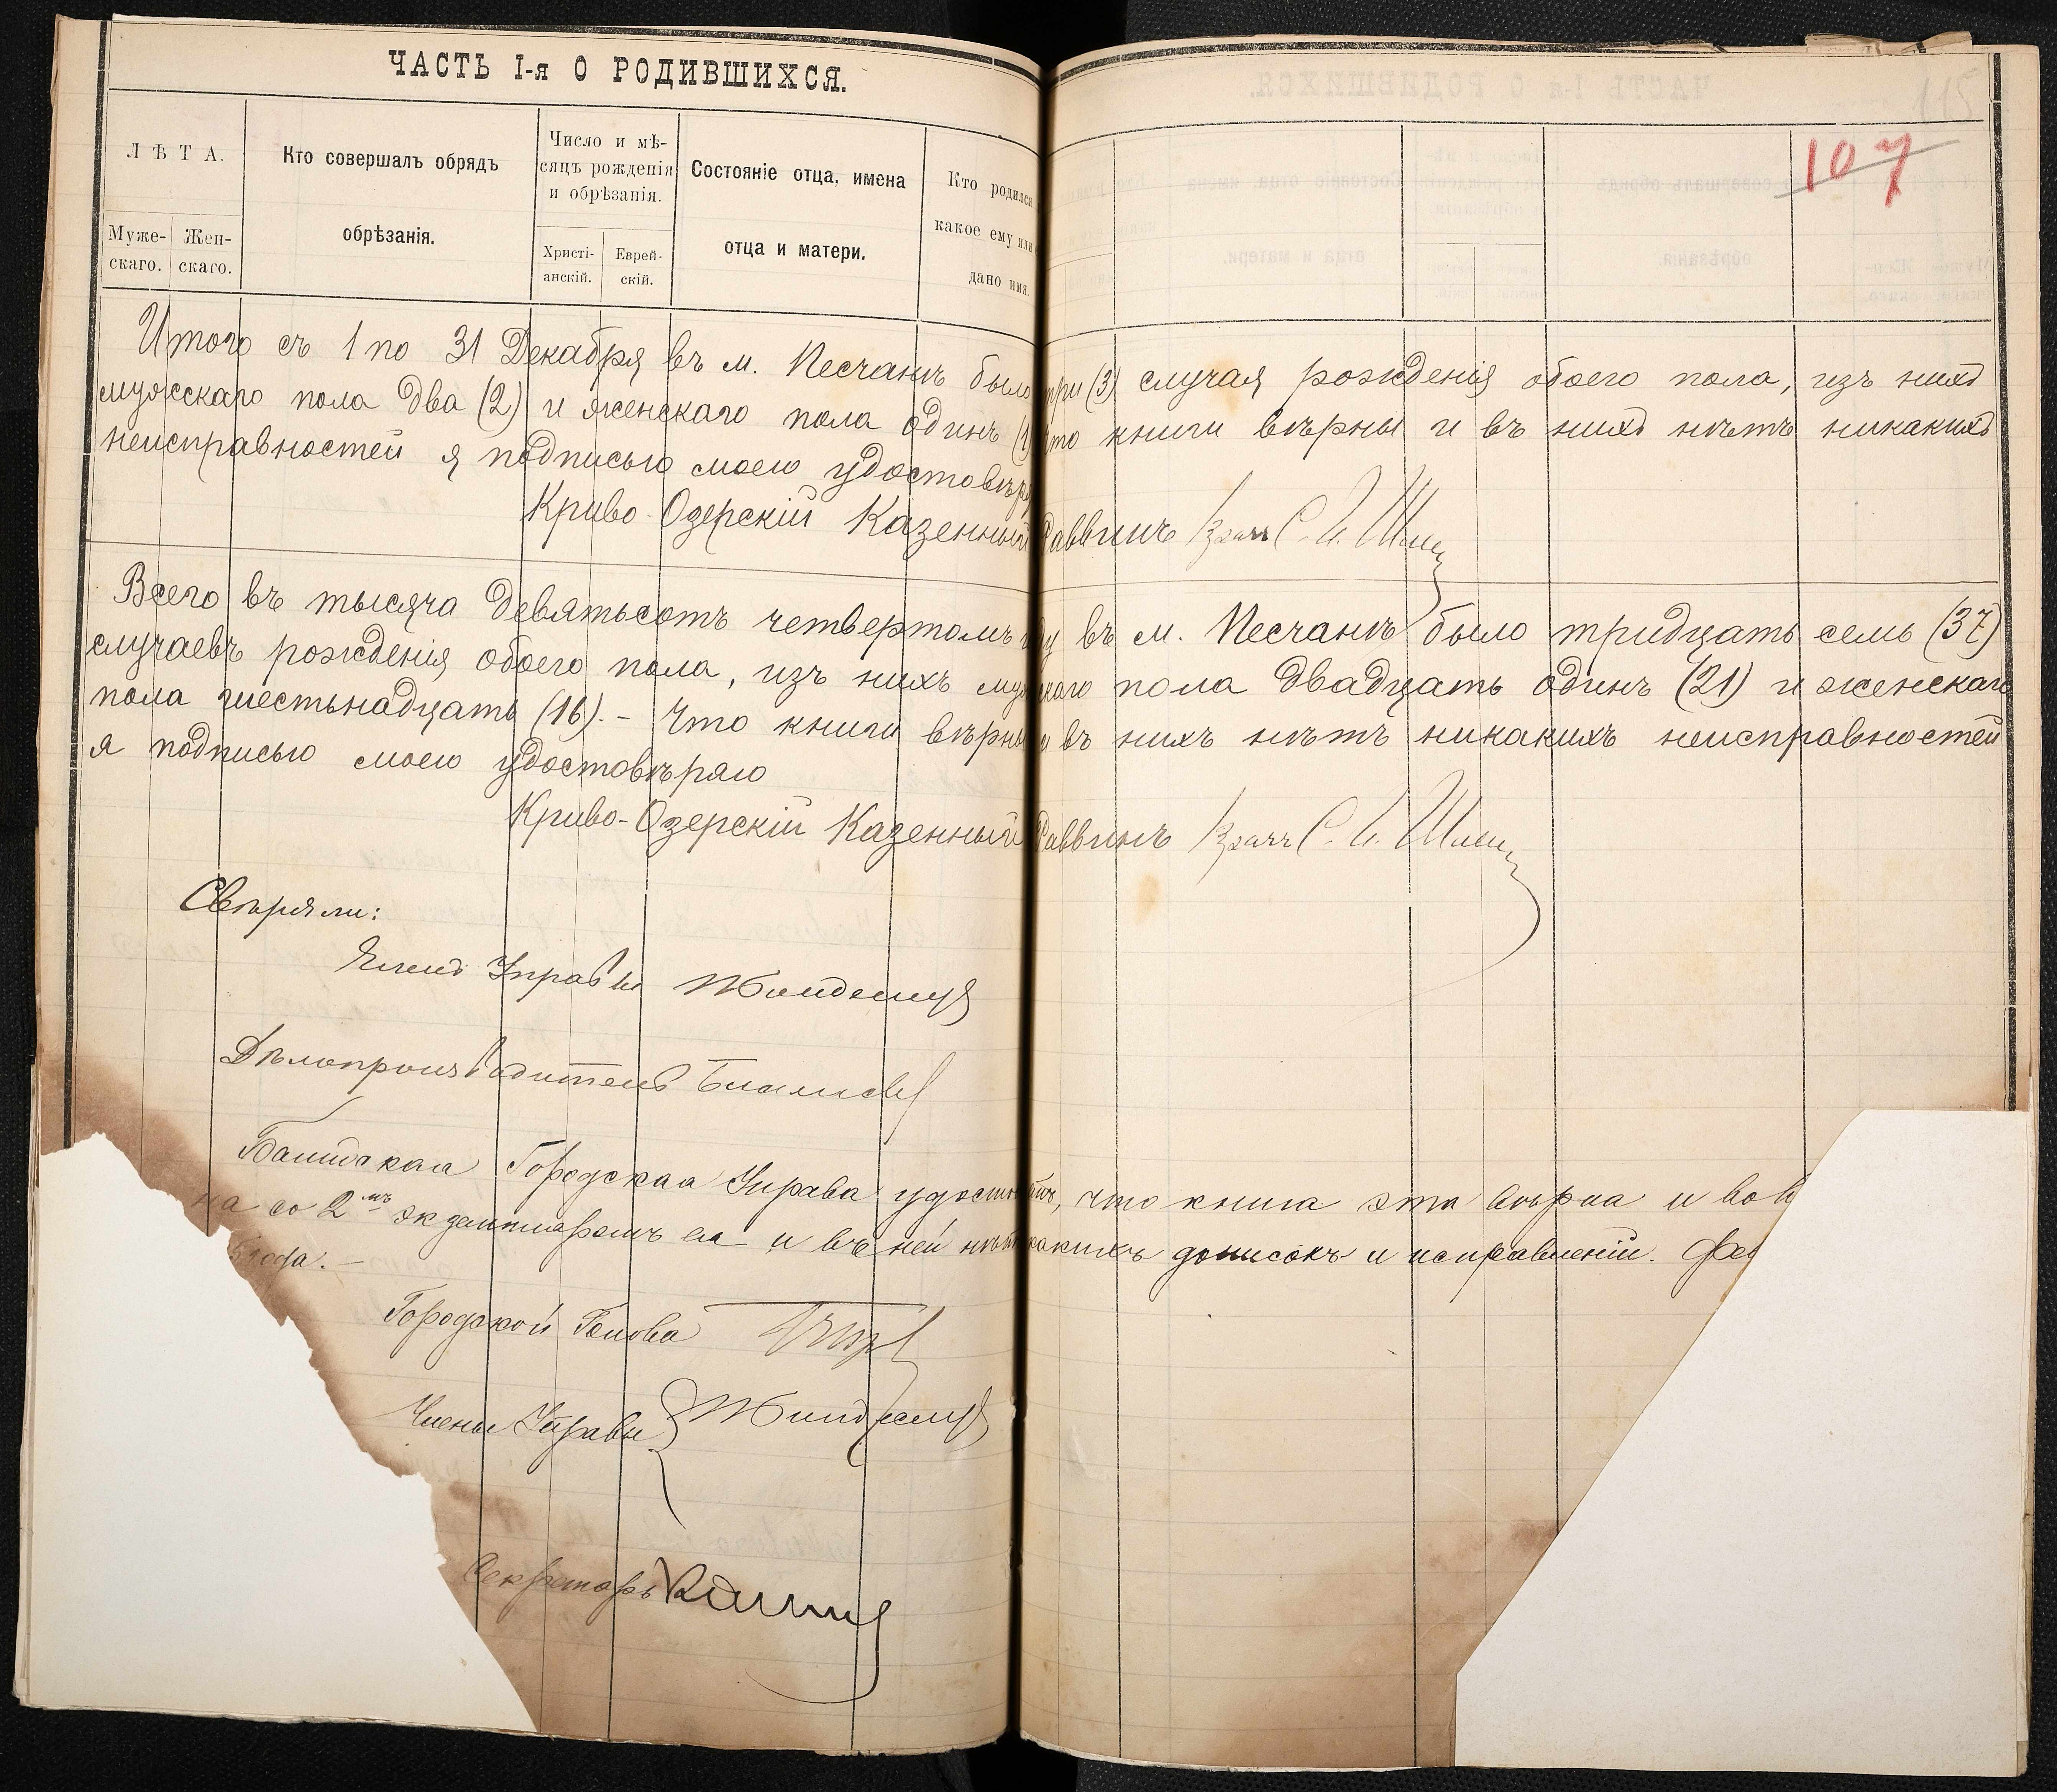 ЧАСТЬ I-я О РОДИВШИХСЯ.
115
107
ЛѢТА.
Муже-
скаго.
Жен-
скаго.
Кто совершалъ обрядъ
обрѣзанія.
Число и мѣ-
сяцъ рожденія
и обрѣзанія.
Христі-
анскій.
Еврей-
скій.
Состояніе отца, имена
отца и матери.
Кто родился
какое ему или
дано имя.
Итого съ 1 по 31 Декабря въ м. Песчанѣ было три (3) случая рожденія обоего пола, изъ нихъ
мужскаго пола два (2) и женскаго пола одинъ (1) что книги вѣрны и въ нихъ нѣтъ никакихъ
неисправностей я подписью моею удостовѣр
Криво-Озерскій Казенный Раввинъ Врачъ С. И.
Всего въ тысяча девятьсотъ четвертомъ году въ м. Песчанѣ было тридцать семь (37)
случаевъ рожденія обоего пола, изъ нихъ мужскаго пола двадцать одинъ (21) и женскаго
пола шестьнадцать (16). - Что книги вѣрны и въ нихъ нѣтъ никакихъ неисправностей
я подписью моею удостовѣряю
Криво-Озерскій Казенный Раввинъ Врачъ С. И.
Свѣряли:
Членъ Управы
Дѣлопроизводитель
Балтская Городская Управа удостов что книга эта вѣрна и
на со 2мъ экземпляромъ ея и въ ней нѣтъ какихъ дописокъ и исправленій.
года. -
Городской Голова
Члены Управы
Секретарь